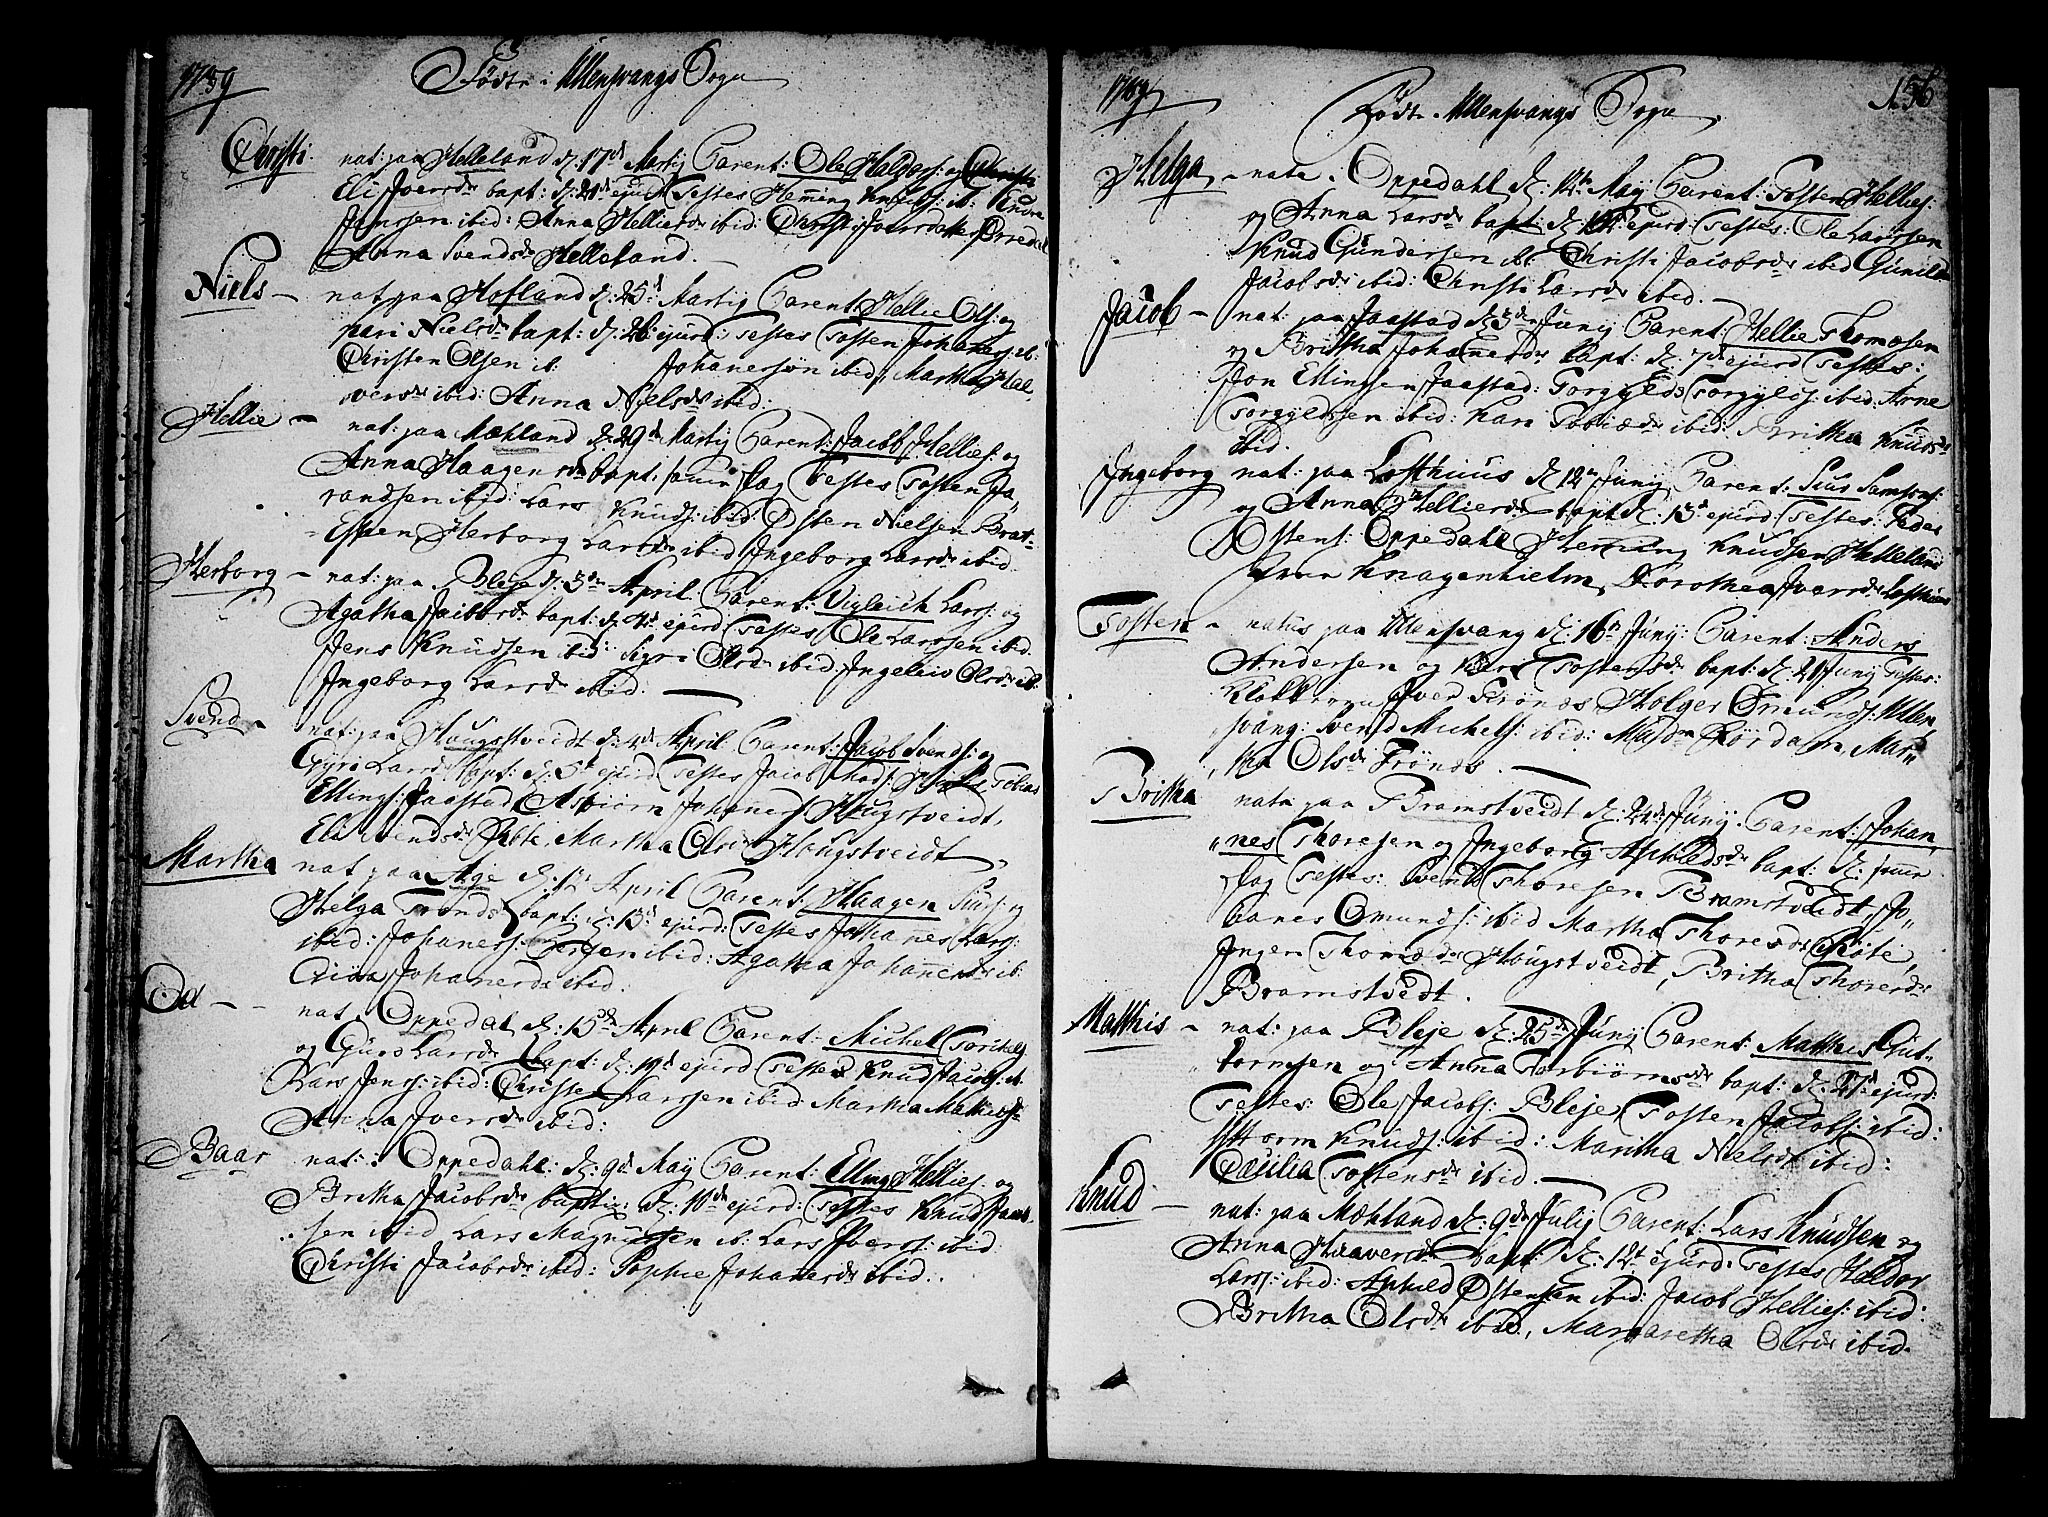 1789 Fødte i Ullensvangs Sogn
Christi. nat: paa Helleland d: 17d Martij Parent: Ole Haldors: og
Eli Iversdr bapt: d: 21d ejusd Testes Heming Knuds: ib:
Jensen ibid: Anna Helliesdr ibid: Christi Joersdatter Opedal
Anna Svendsdr Helleland.
Niels – nat: paa Hofland d: 25d Martij Parent: Hellie Ols: og
Kari Nielsdr bapt: d: 26 ejusd: Testes Tosten Johanes: ib:
Christen Olsen ib. Johanessøn ibid: Martha Hal-
versdr ibid: Anna Nielsdr ibid:
Hellie – nat: paa Mæhland d: 29d Martij Parent: Jacob Hellies: og
Anna Haagensdr bapt: samme Dag Testes Tosten Ja-
randsen ibid: Lars Knuds: ibid: Østen Nielsen Brat-
Espen Herborg Larsdr ibid Ingeborg Larsdr ibid.
Herborg – nat: paa Bleje d: 3de April Parent: Vigleich Lars: og
Agatha Jacobsdr bapt: d: 4d ejusd: Testes Ole Larssen ibid.
Jens Knudsen ibid: Sigri Olsdr ibid: Ingeleiv Olsdr ib:
Ingeborg Larsdr ibid:
Svend – nat: paa Hougstveidt d: 4d April Parent: Jacob Svends: og
Gyri Larsdr bapt: d: 5t ejusd Testes Jacob Tobias
Ellings: Jaastad Asbiørn Johanes: Haugstveidt,
Eli Svendsdr Martha Olsdr Hougstveidt
Martha nat: paa Age d: 12 April Parent: Haagen Siurs: og
Helga Trondsdr bapt: d: 13d ejusd: Testes Johannes Lars:
ibid: Johaness: ibid: Agatha Johannesdr ib:
Johanesdr ibid.
Od – – nat: i Oppedal d: 15de April Parent: Michel Torkels:
og Guro Larsdr bapt: d: 19d ejusd Testes Knud Jacobs: ib:
Lars Jens: ibid: Christen Larssen ibid Martha Mathisdr
Anna Iversdr ibid:
Baar nat: i Oppedahl: d: 9d Maij Parent: Elling Hellies: og
Britha Jacobsdr baptiz: d: 10de ejusd: Testes Knud Jacob-
sen ibid Lars Magnussen ib: Lars Ivers: ibid:
Christi Jacobsdr ibid: Sophie Johanesdr ibid.
1789 156
Fødte i Ullensvangs Sogn.
Helga, – nata i Oppedahl d: 12te Maij Parent: Tosten Hellies:
og Anna Larsdr bapt: d: ejusd: Testes: Ole Larssen
Knud Gundersen ib: Christi Jacobsdr ibid Gunild
Jacobsdr ibid: Christi Larsdr ibid.
Jacob – nat: paa Jaastad d: 3de Junij Parent: Hellie Thomæsen
og Britha Johanesdr bapt: d: 7d ejusd Testes:
Jon Ellingsen Jaastad: Torgylds Torgyls: ibid: Arne
Torgyldsen ibid: Kari Tobiædr ibid: Britha Knudsdr
ibid.
Ingeborg nat: paa Lofthuus d: 12te Junij Parent: Siur Samsons:
og Anna Helliesdr bapt: d: 13d ejusd: Testes: Peder
Østens: Oppedahl Heming Knudsen Helleland
Knagenhielm, Dorothea Iversdr Lofthuus
Tosten – natus paa Ullensvang d: 16n Junij: Parent: Anders
Andersen og Kari Tostensdr bapt: d: 21 Junij Testes:
Iver Trønds, Holger Omunds: Ullen-
svang: Svend Michels: ibid: Madm Hørdam, Mar-
tha Olsdr Trønds.
Britha nata paa Bramstveidt d: 24d: Junij. Parent: Johan-
nes Thoresen og Ingeborg Aschieldsdr bapt: d: samme
Dag Testes: Svend Thoresen Bramstveidt, Jo-
hanes Omunds: ibid Martha Thoresdr
Inger Thomædr Hougstveidt, Britha Thoresdr
Bramstvedt.
Mathis – nat: paa Bleje d: 25d Junij Parent: Mathis Gut-
tormsen og Anna Torbiørnsdr bapt: d: 27d ejusd:
Testes: Ole Jacobs: Bleje, Tosten Jacobs: ibid:
Knuds: ibid: Maritha Nielsdr ibid:
Cæcilia Tostensdr ibid.
Knud – nat: paa Mæhland d: 9de Julij Parent: Lars Knudsen og
Anna Haaversdr bapt: d: 12t ejusd: Testes Haldor
Lars: ibid: Aschild Østensen ibid: Jacob Hellies: ibid:
Britha Olsdr ibid, Margaretha Olsdr ibid.